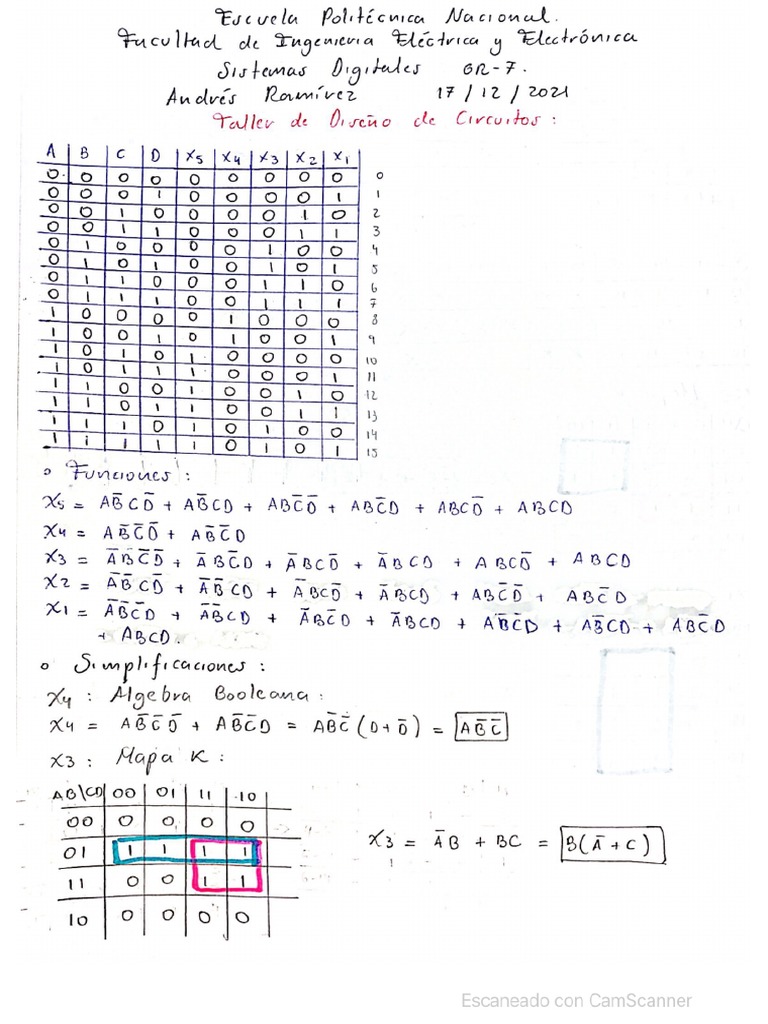 Escuela Politécnica Nacional.
Facultad de Ingenieria Eléctrica y Electrónica
Sistemas Digitales GR-7.
Andrés Ramírez 17/12/2021
Taller de Diseño de Circuitos:
A B C D X5 X4 X3 X2 X1
0 0 0 0 0 0 0 0 0 0
0 0 0 1 0 0 0 0 1 1
0 0 1 0 0 0 0 1 0 2
0 0 1 1 0 0 0 1 1 3
0 1 0 0 0 0 1 0 0 4
0 1 0 1 0 0 1 0 1 5
0 1 1 0 0 0 1 1 0 6
0 1 1 1 0 0 1 1 1 7
1 0 0 0 0 1 0 0 0 8
1 0 0 1 0 1 0 0 1 9
1 0 1 0 1 0 0 0 0 10
1 0 1 1 1 0 0 0 1 11
1 1 0 0 1 0 0 1 0 12
1 1 0 1 1 0 0 1 1 13
1 1 1 0 1 0 1 0 0 14
1 1 1 1 1 0 1 0 1 15
o Funciones:
X5 = AB̅CD̅ + AB̅CD + ABC̅D̅ + ABC̅D + ABCD̅ + ABCD
X4 = AB̅C̅D̅ + AB̅C̅D
X3 = A̅B̅C̅D̅ + A̅BC̅D + A̅BCD̅ + A̅BCD + ABCD̅ + ABCD
X2 = A̅B̅CD̅ + A̅B̅CD + A̅BCD̅ + A̅BCD + ABC̅D̅ + ABC̅D
X1 = A̅B̅C̅D + A̅B̅CD + A̅BC̅D + A̅BCD + AB̅C̅D + AB̅CD + ABC̅D
+ ABCD.
o Simplificaciones:
X4: Algebra Booleana:
X4 = AB̅C̅D̅ + AB̅C̅D = AB̅C̅(D+D̅) = AB̅C̅
X3: Mapa K:
AB\CD 00 01 11 10
00 0 0 0 0
01 1 1 1 1
11 0 0 1 1
10 0 0 0 0
X3 = A̅B + BC = B(A̅+C)
Escaneado con CamScanner